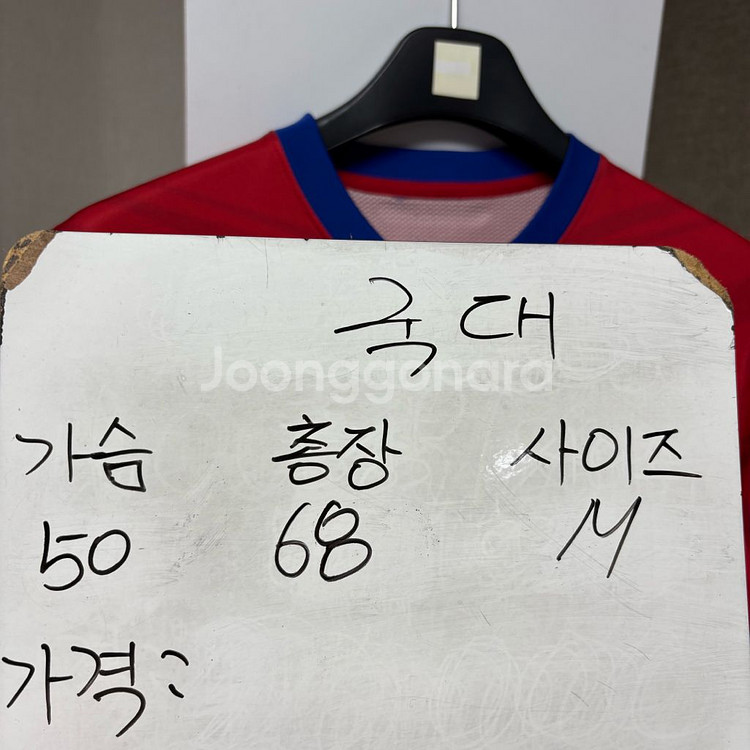 국대
Joonggonara
가슴 총장 사이즈
50 68 M
가격: